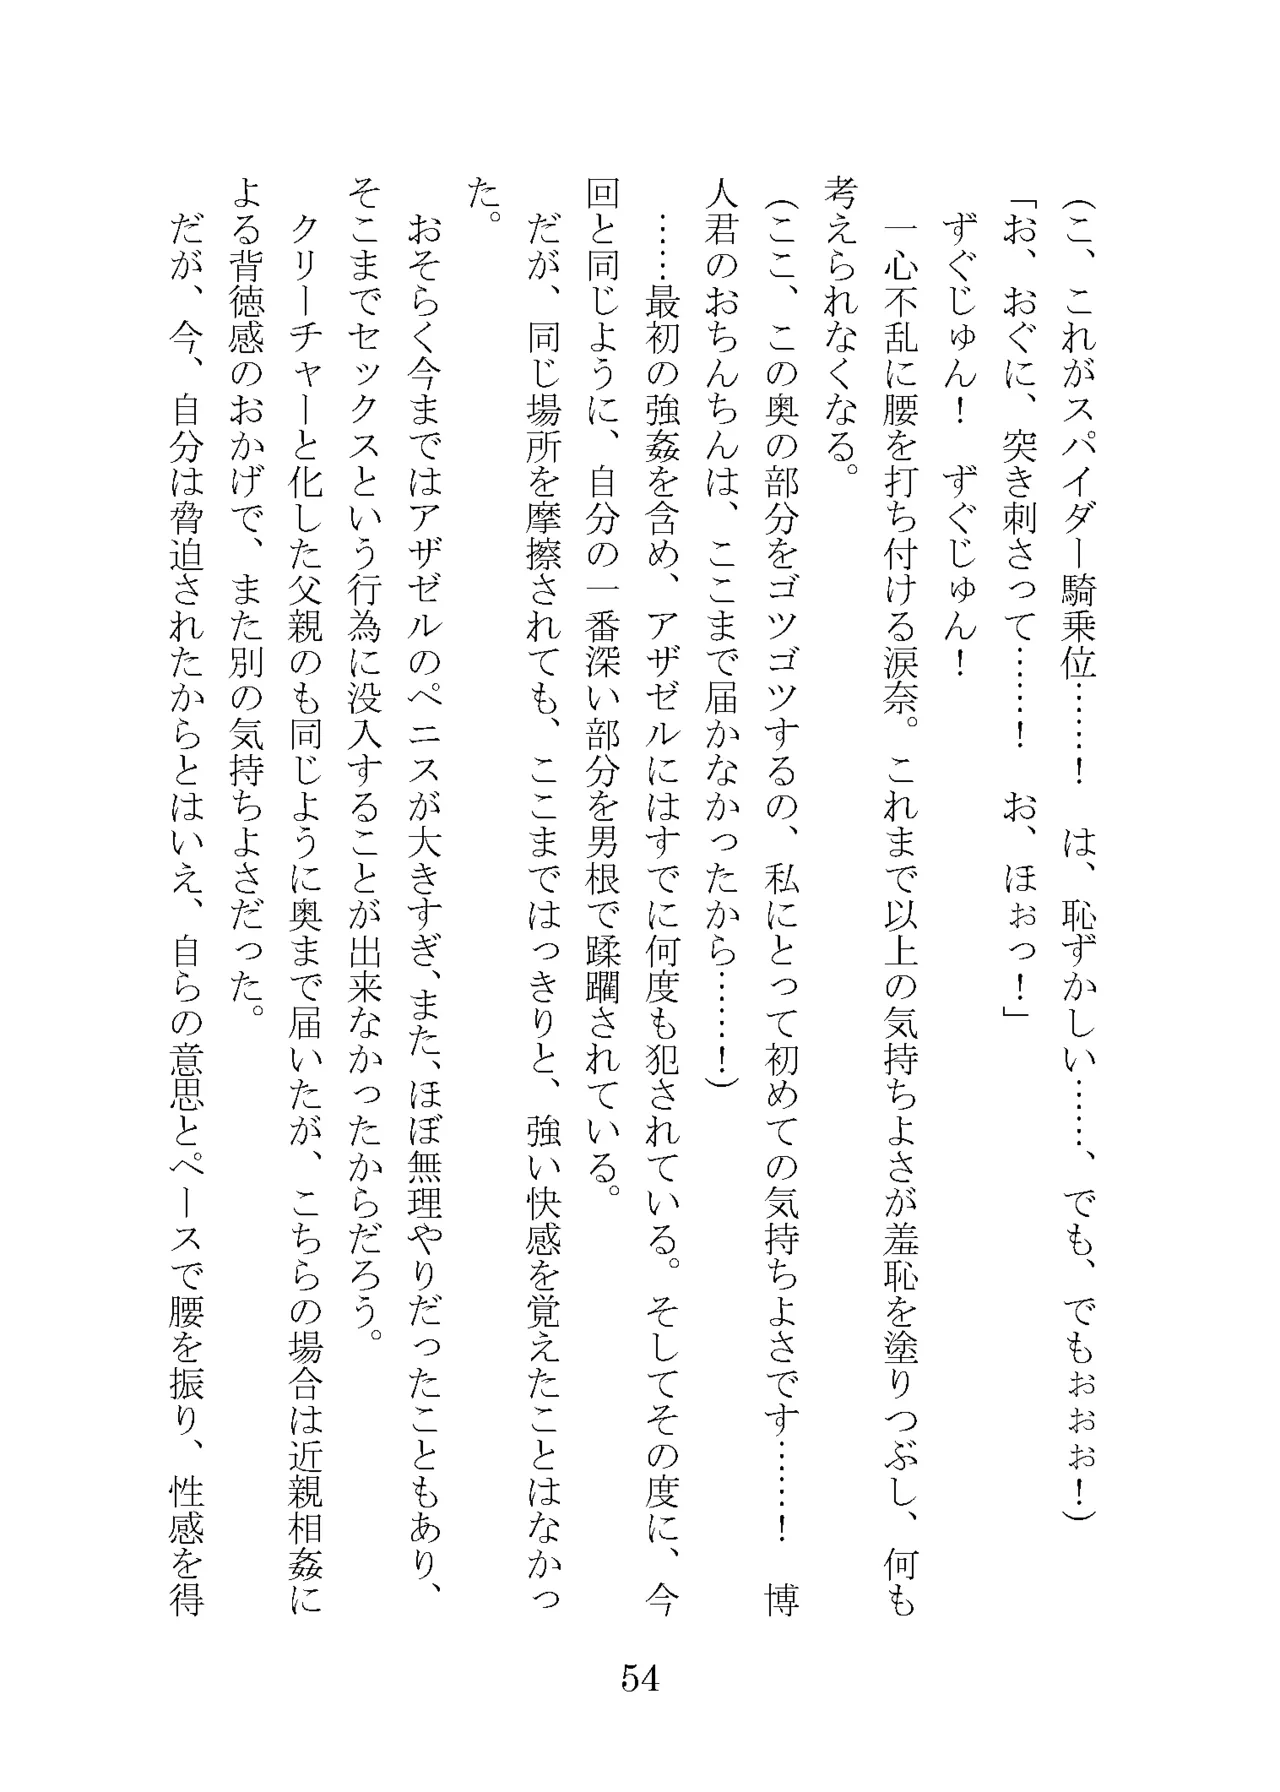 (こ、これがスパイダー騎乗位……！　は、恥ずかしい……、でも、でもぉぉぉ！)
「お、おぐに、突き刺さって……！　お、ほぉっ！」
ずぐじゅん！　ずぐじゅん！
一心不乱に腰を打ち付ける涙奈。これまで以上の気持ちよさが羞恥を塗りつぶし、何も
考えられなくなる。
(ここ、この奥の部分をゴツゴツするの、私にとって初めての気持ちよさです……！　博
人君のおちんちんは、ここまで届かなかったから……！)
……最初の強姦を含め、アザゼルにはすでに何度も犯されている。そしてその度に、今
回と同じように、自分の一番深い部分を男根で蹂躙されている。
だが、同じ場所を摩擦されても、ここまではっきりと、強い快感を覚えたことはなかっ
た。
おそらく今まではアザゼルのペニスが大きすぎ、また、ほぼ無理やりだったこともあり、
そこまでセックスという行為に没入することが出来なかったからだろう。
クリーチャーと化した父親のも同じように奥まで届いたが、こちらの場合は近親相姦に
よる背徳感のおかげで、また別の気持ちよさだった。
だが、今、自分は脅迫されたからとはいえ、自らの意思とペースで腰を振り、性感を得
54